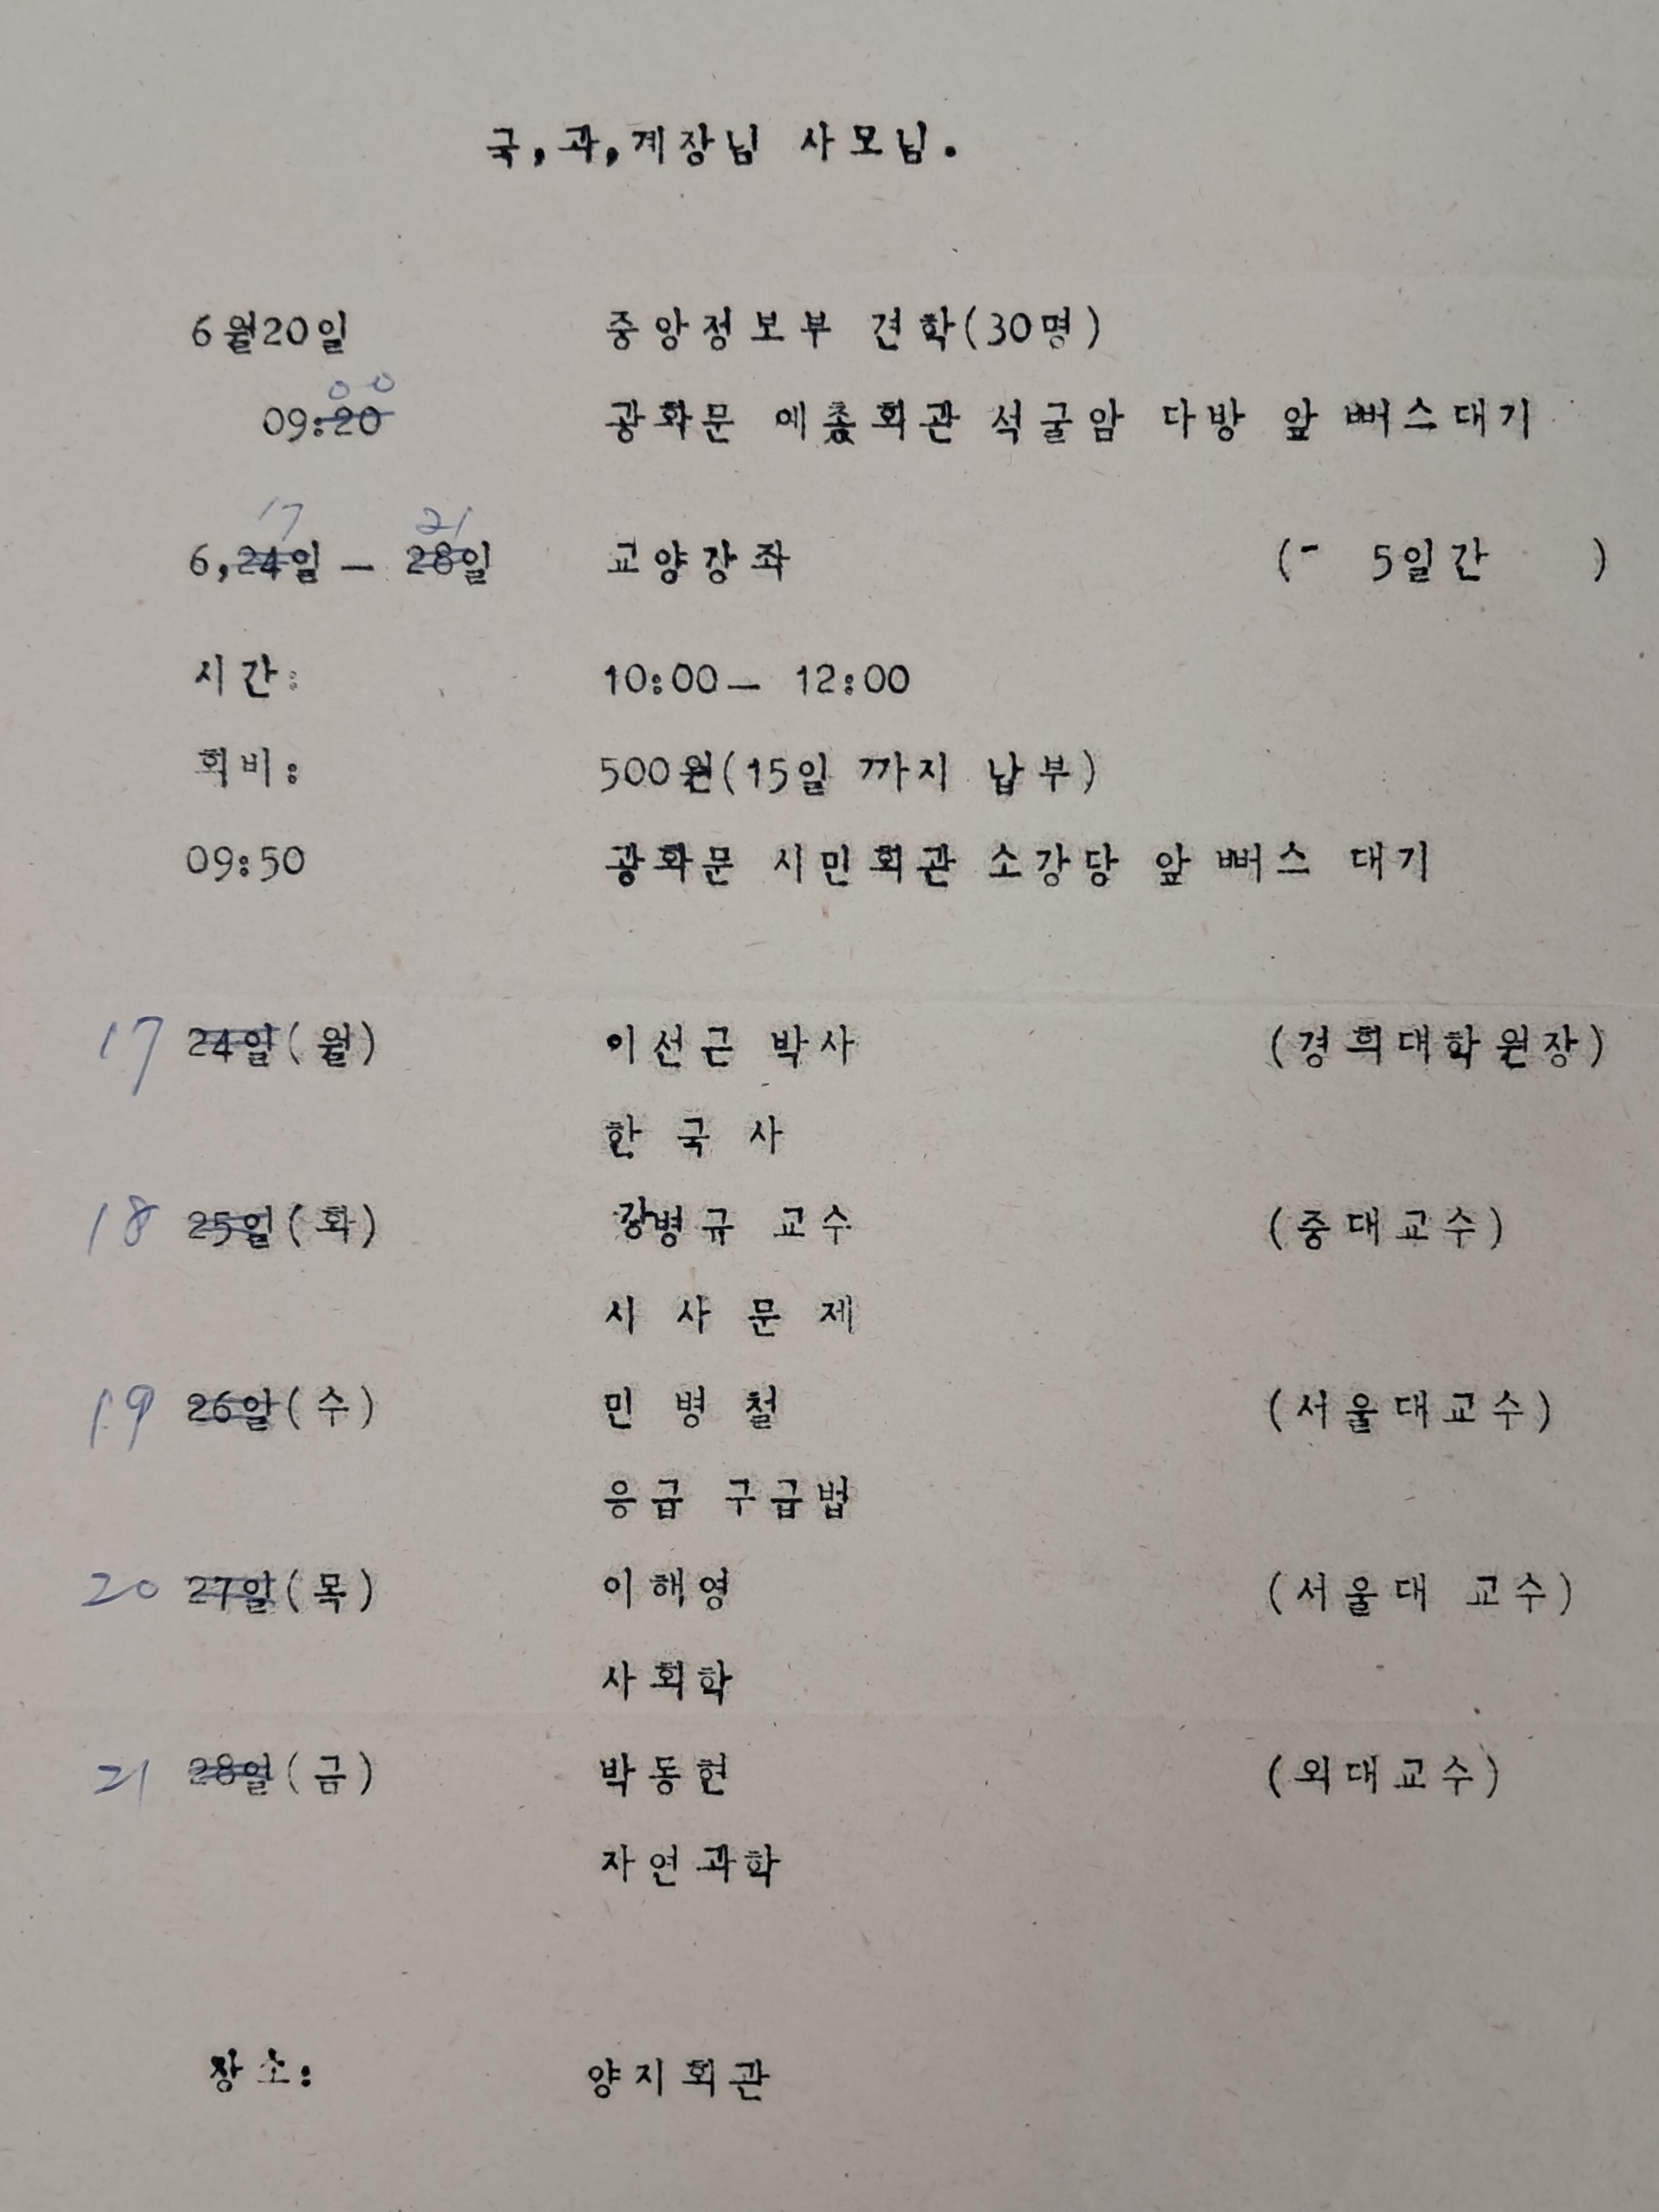 국,과,계장님 사모님.
6월20일 중앙정보부 견학(30명)
00
09:20 광화문 예총회관 석굴암 다방 앞 뻐스대기
17 21
6,24일 — 28일 교양강좌 (- 5일간 )
시간: 10:00— 12:00
회비: 500원(15일 까지 납부)
09:50 광화문 시민회관 소강당 앞 뻐스 대기
17 24일(월) 이선근 박사 (경희대학원장)
한 국 사
18 25일(화) 강병규 교수 (중대교수)
시 사 문 제
19 26일(수) 민 병 철 (서울대교수)
응급 구급법
20 27일(목) 이해영 (서울대 교수)
사회학
21 28일(금) 박동현 (외대교수)
자연과학
장소: 양지회관